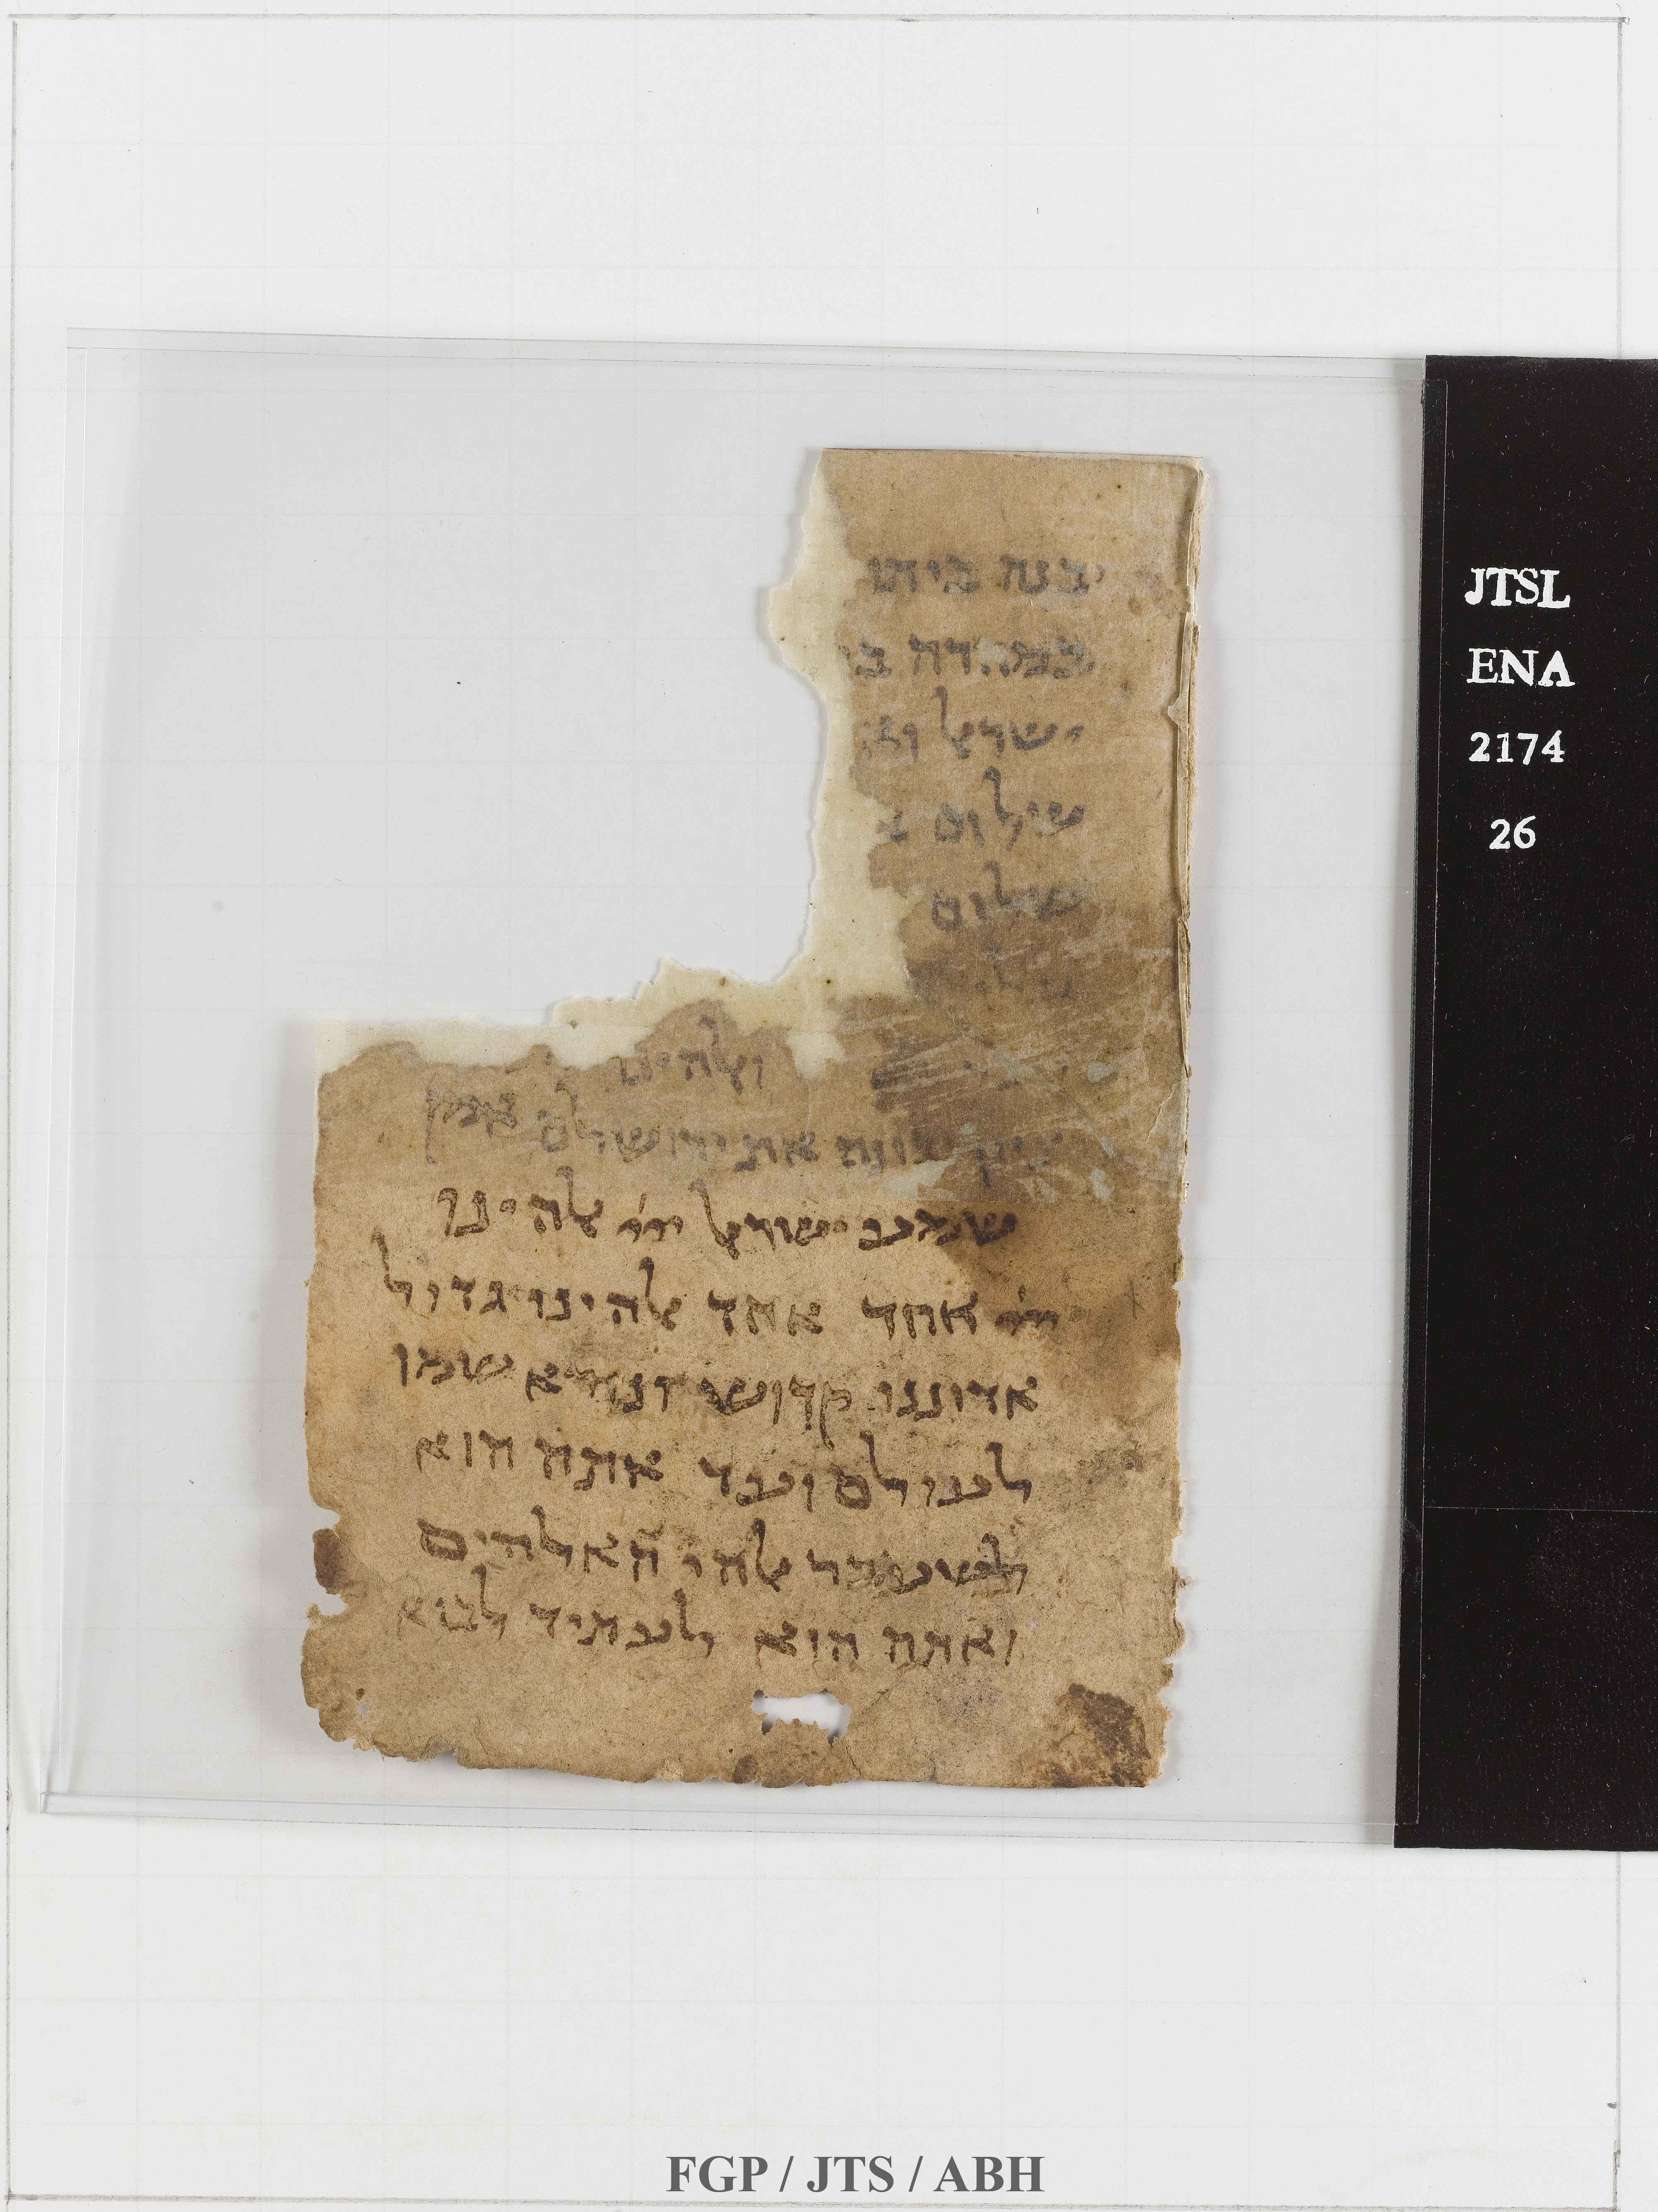 יבנה ביתו
במהרה בי
ישראל וא
שילום
שלום
ואלהינו
ציון בונה את ירושלם אמן
שמע ישראל ייי אלהינו
ייי אחד אחד אלהינו גדול
אדוננו קדוש ונורא שמו
לעולם ועד אתה הוא
לשעבר אלהי האלהים
ואתה הוא לעתיד לבוא
JTSL
ENA
2174
26
FGP / JTS / ABH